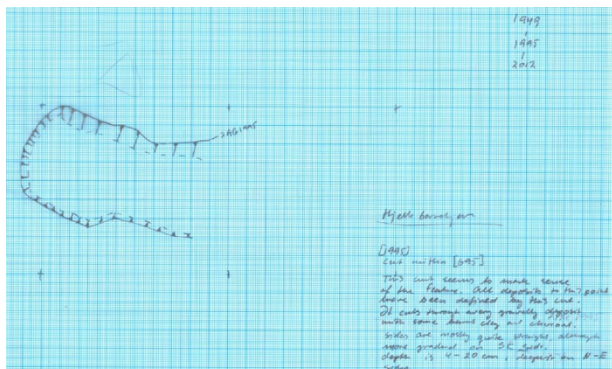 1949
1995
2012
[1995]
Cut within [695]
This cut seems to mark
of the feature. All deposits to this point
have been defined by this cut.
It cuts through gravelly deposit
with some burnt clay and charcoal.
Sides are mostly quite straight, although
more gradual on SE side.
depth is 4-20 cm, deepest on N-E
side